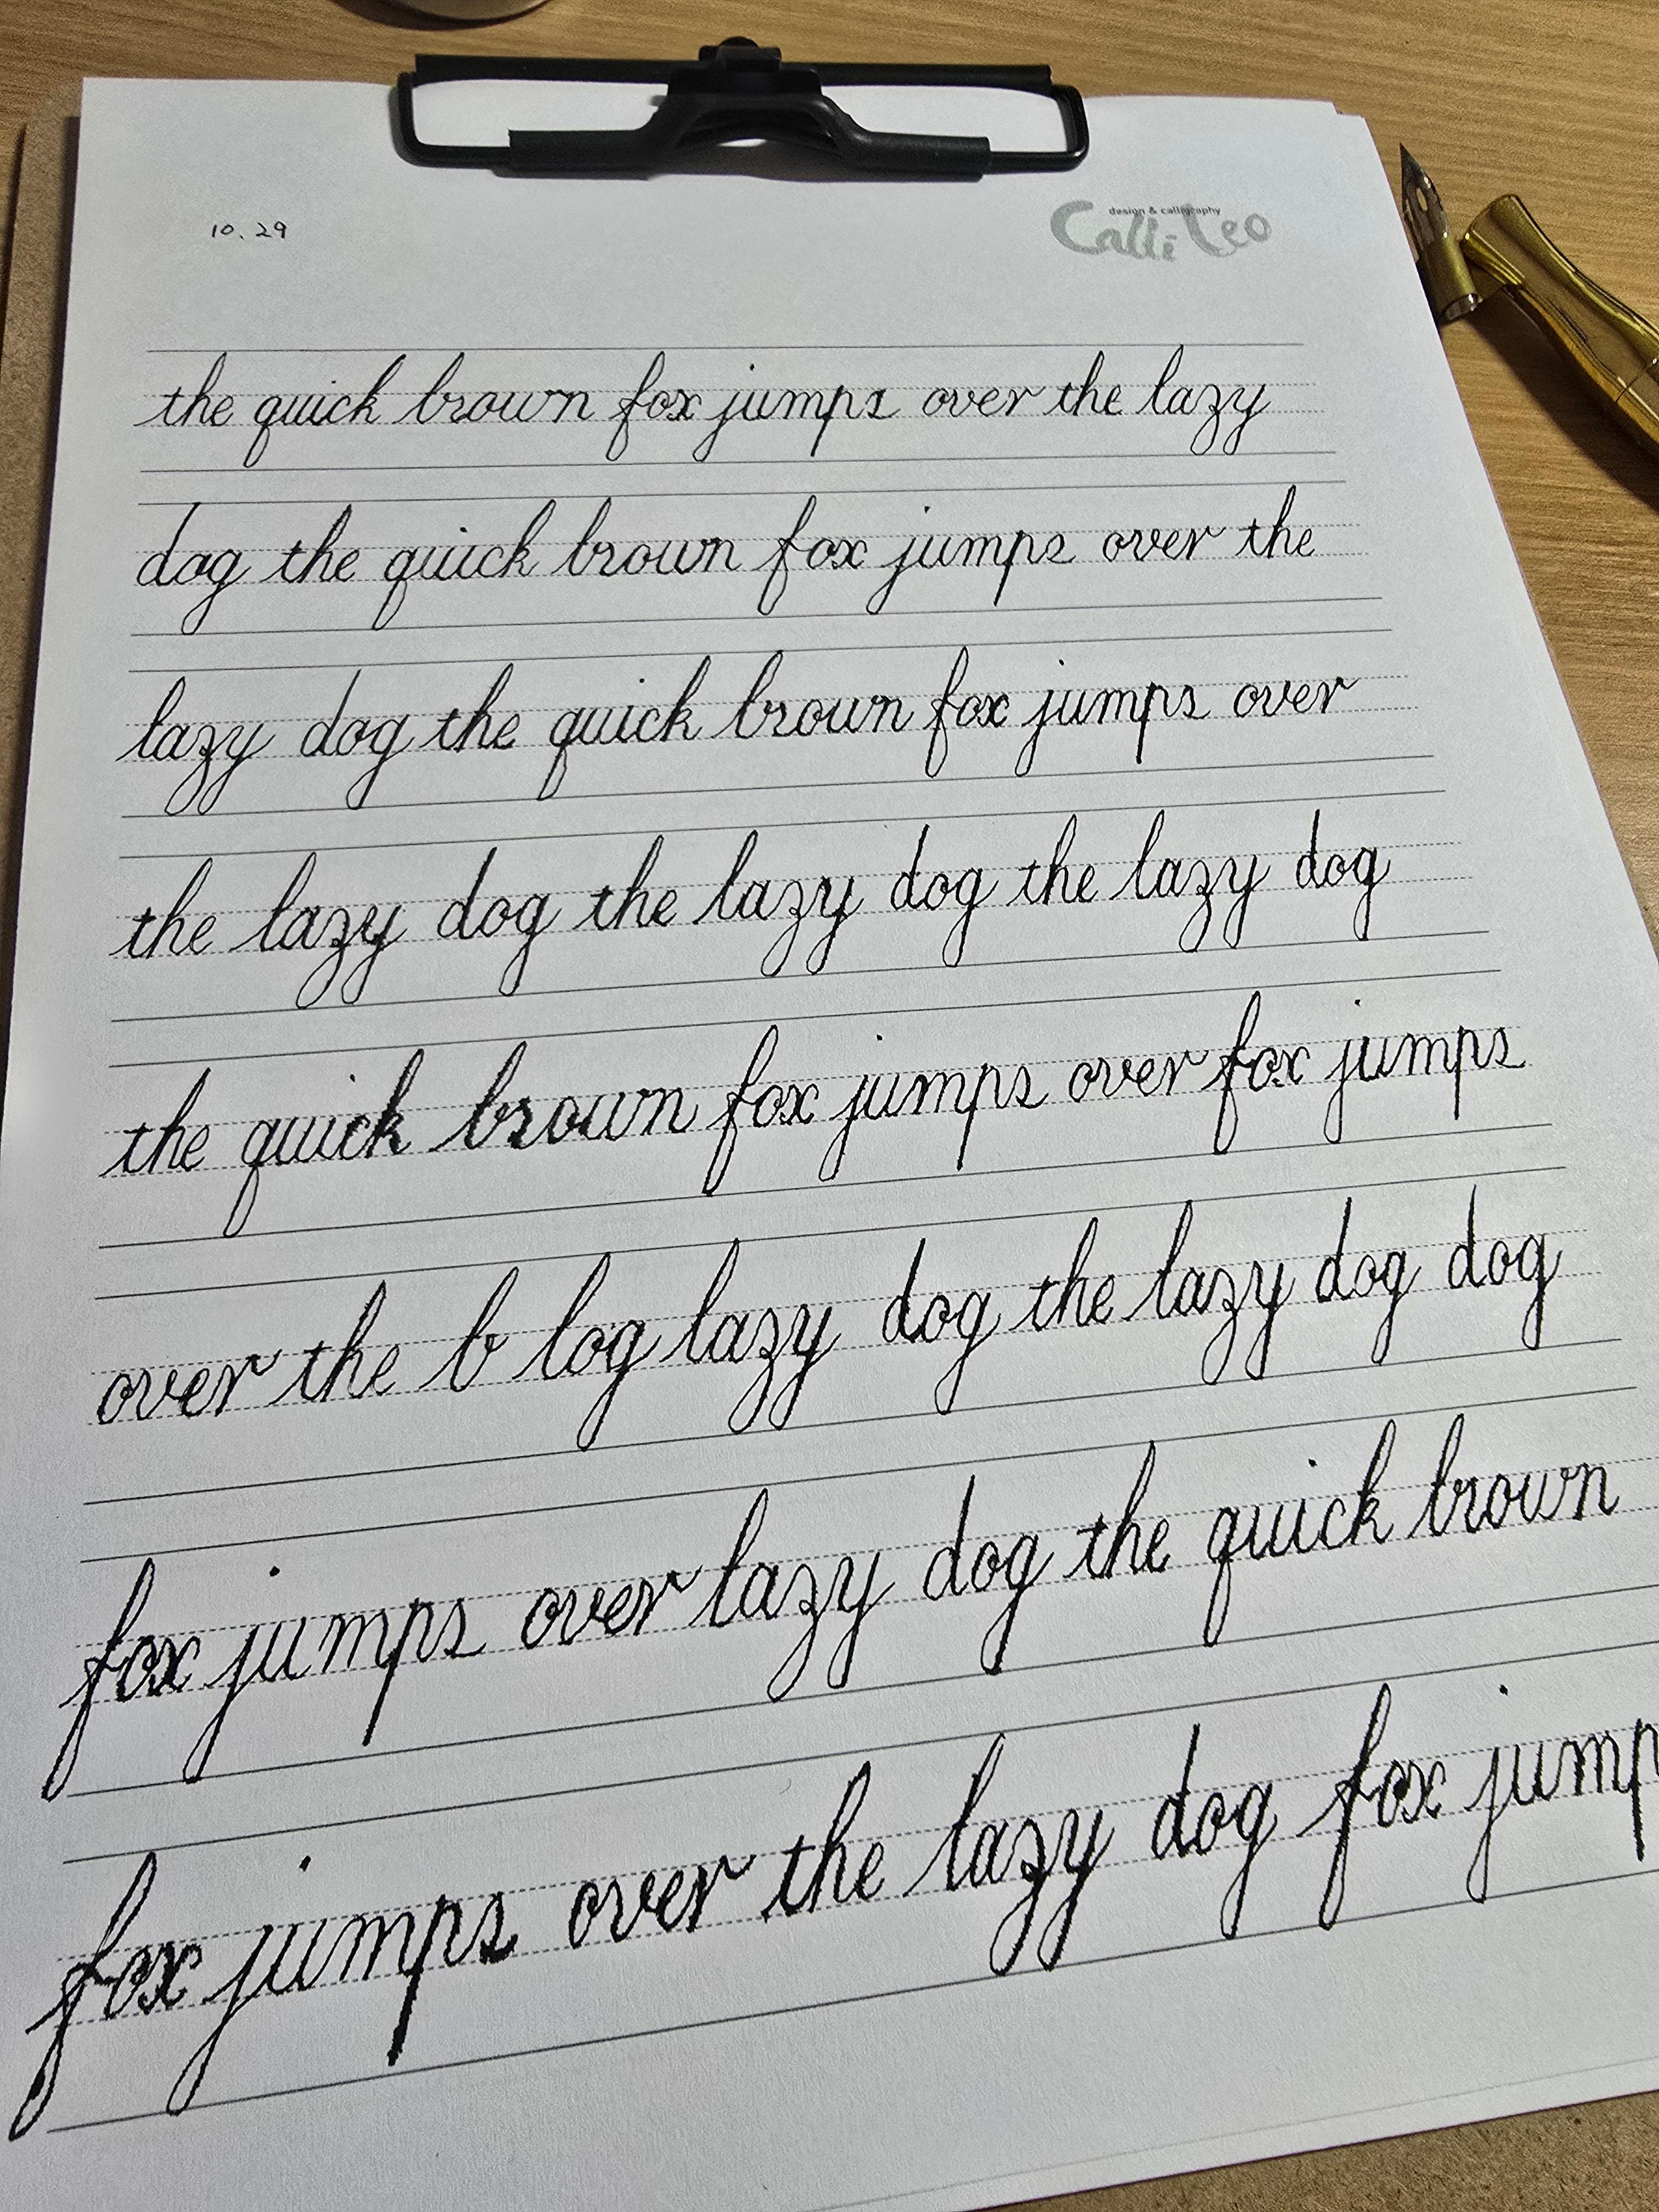 10.29
design & calligraphy
Calli Leo
the quick brown fox jumps over the lazy
dog the quick brown fox jumps over the
lazy dog the quick brown fox jumps over
the lazy dog the lazy dog the lazy dog
the quick brown fox jumps over fox jumps
over the b log lazy dog the lazy dog dog
fox jumps over lazy dog the quick brown
fox jumps over the lazy dog fox jump